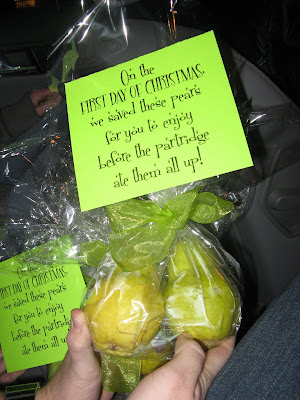 On the
FIRST DAY OF CHRISTMAS,
we saved these pears
for you to enjoy
before the partridge
ate them all up!
FIRST DAY OF CHRISTMAS,
we saved these pears
for you to enjoy
before the partridge
ate them all up!